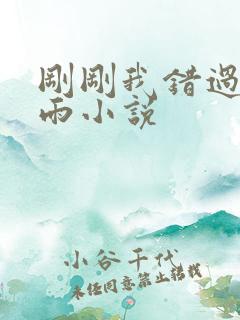 剛剛我錯過
雨小說
小谷千代
未經同意禁止轉載